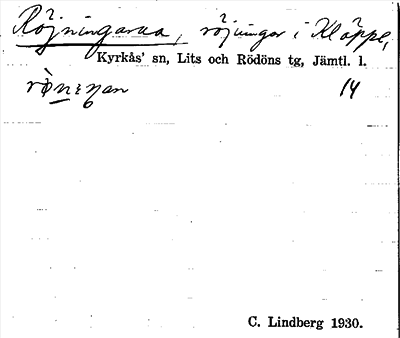 Röjningarna, röjningar i Kläppe,
Kyrkås' sn, Lits och Rödöns tg, Jämtl. l.
14
C. Lindberg 1930.